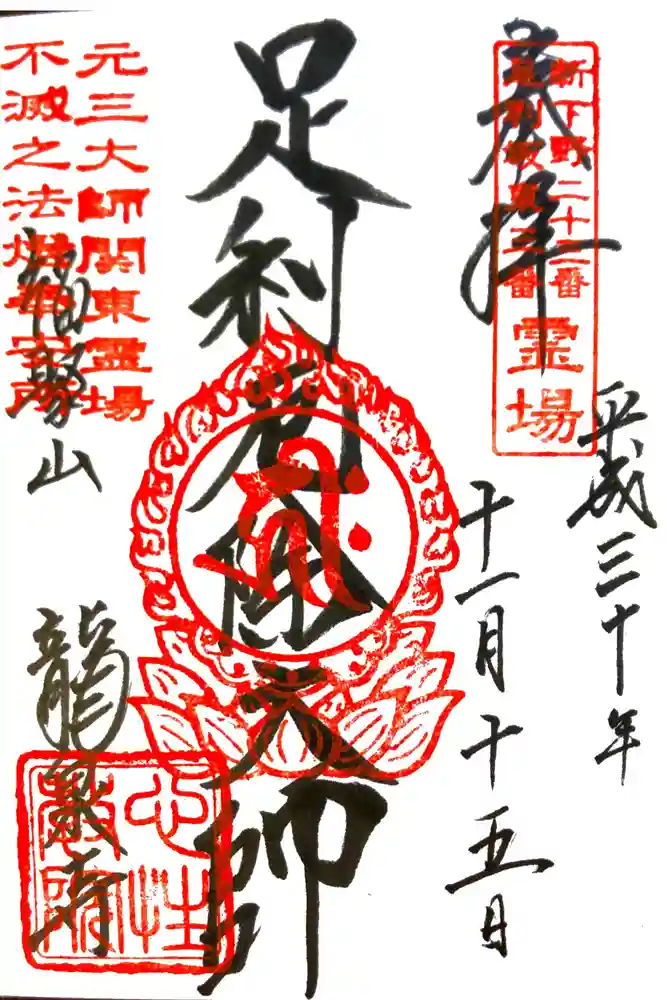 奉拝
新下野二十二番
足利坂東三番
霊場
平成三十年
十一月十五日
足利厄除大師
元三大師関東霊場
不滅之法燈奉安所
福聚山
龍泉寺
心性